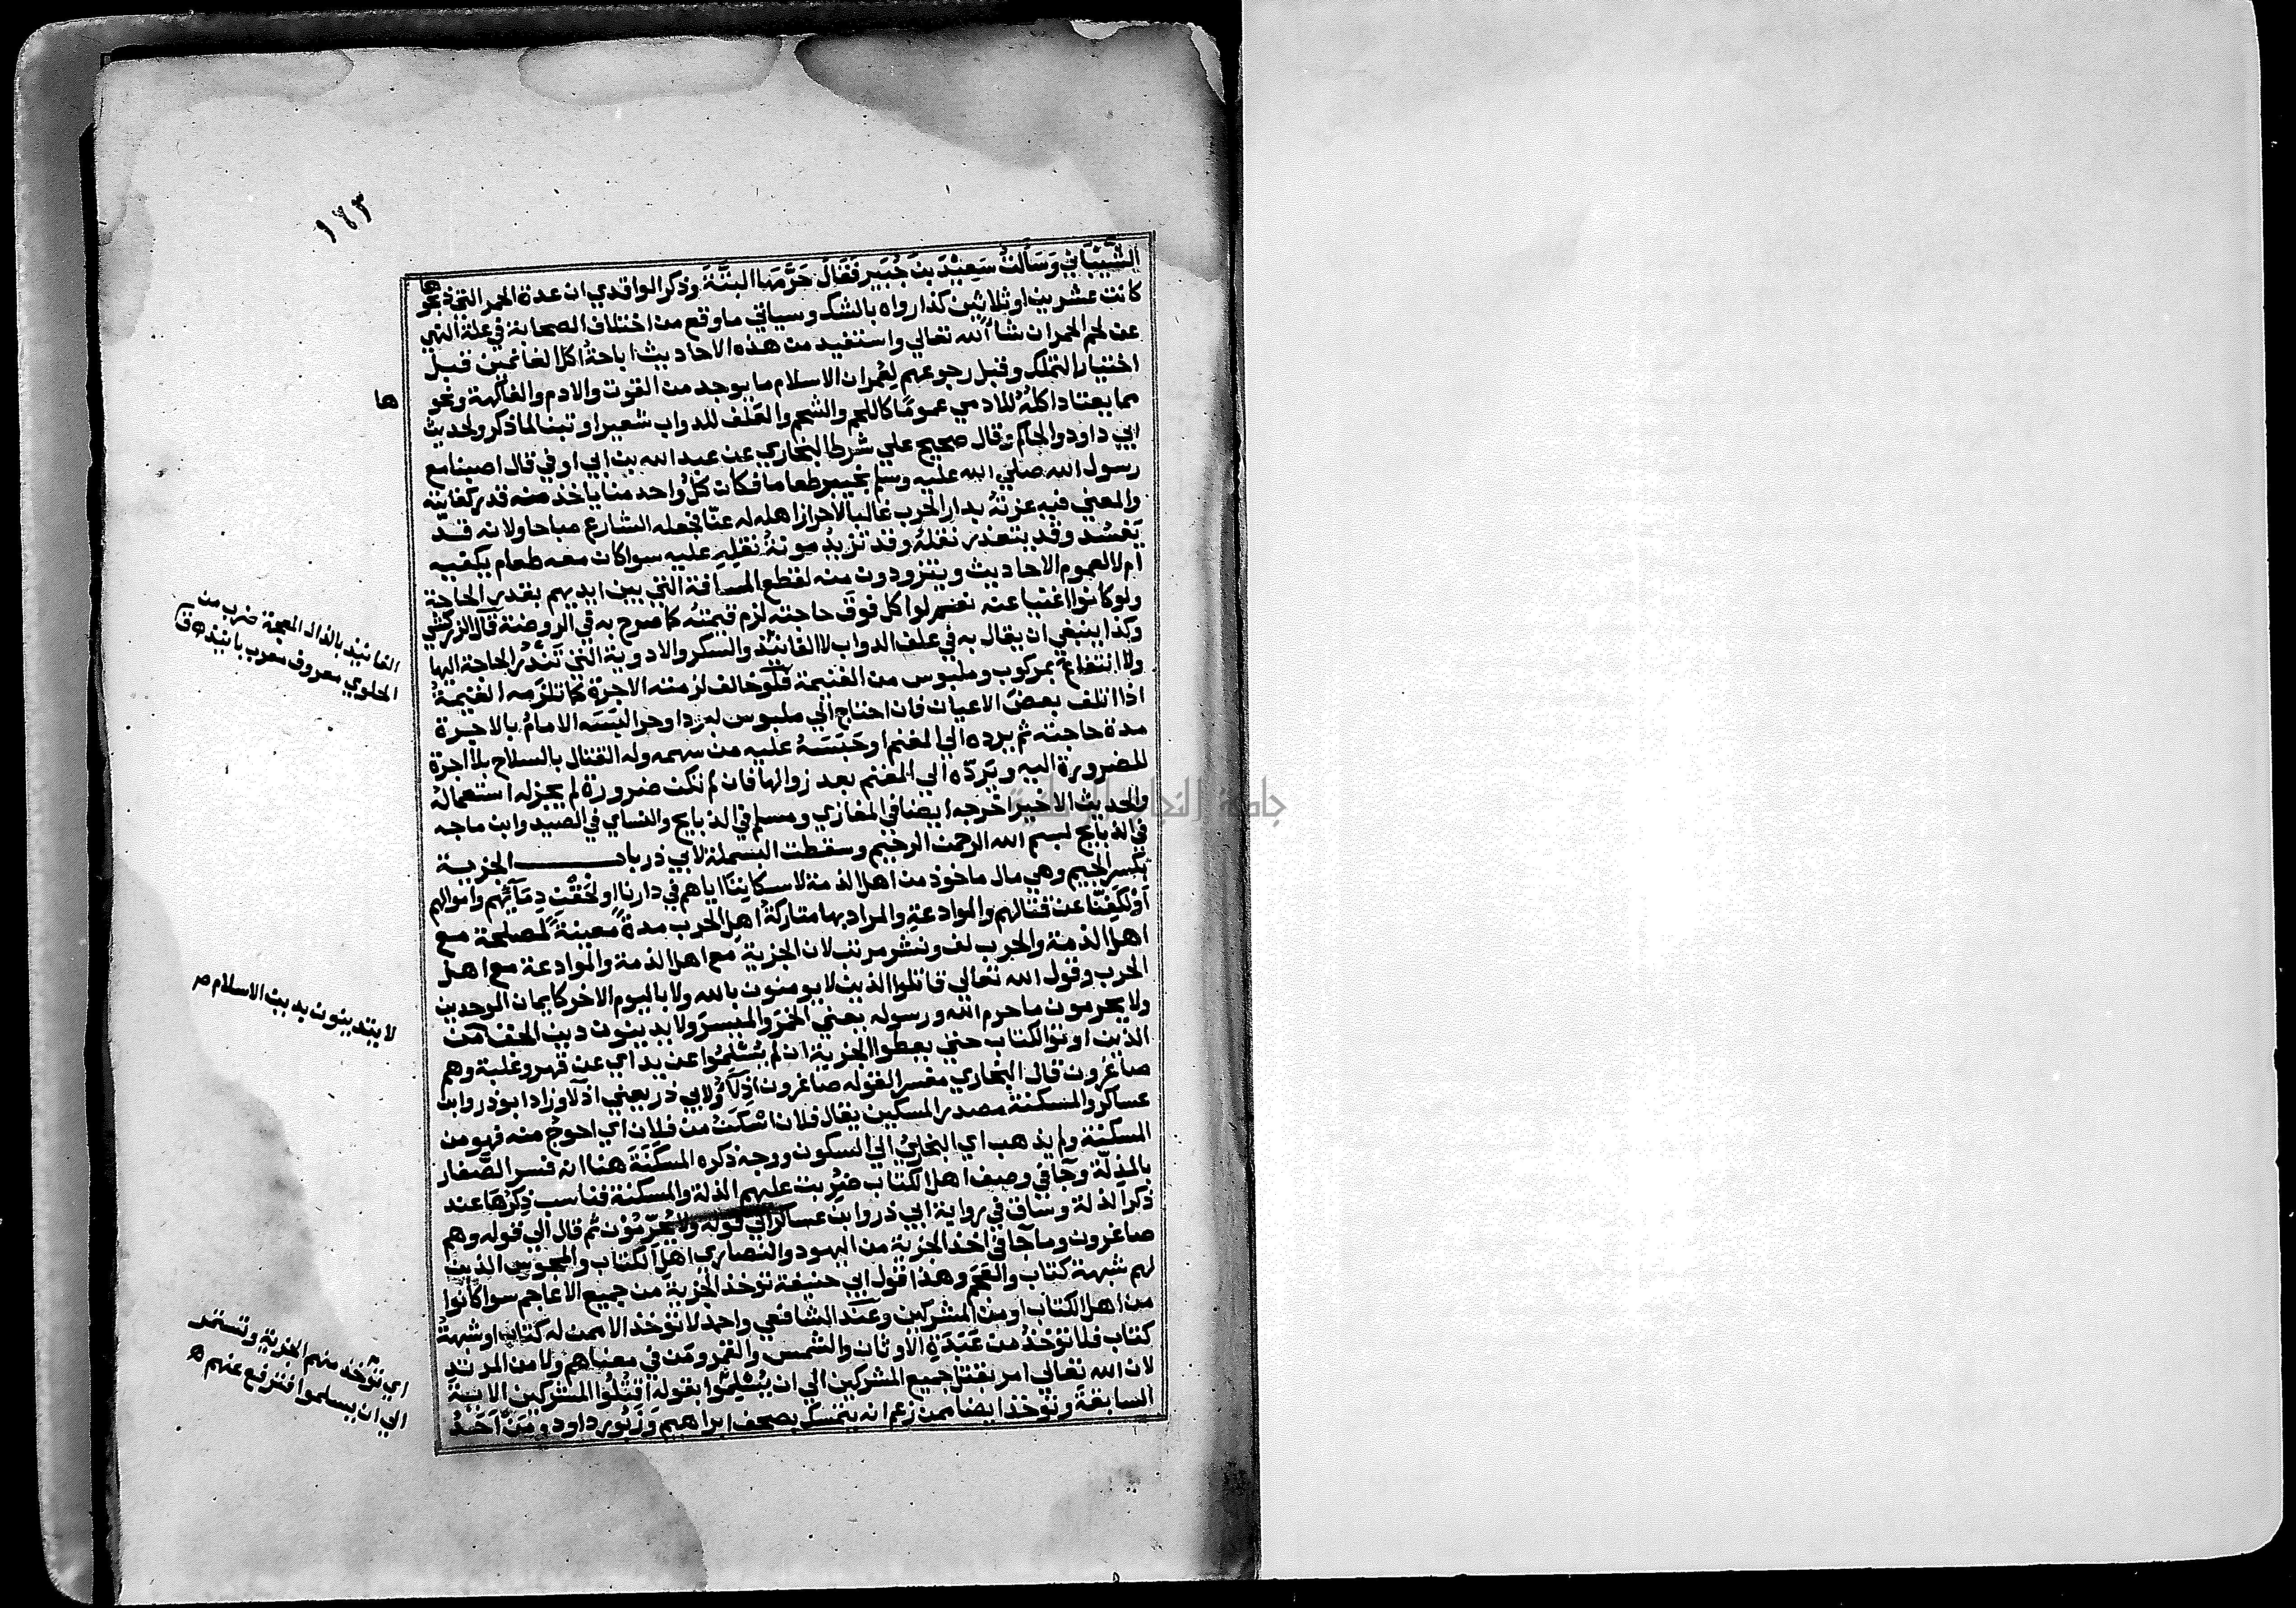 ١٦٣
الشَّيْبَاني وَسَأَلتُ سَعِيْدَ بنَ جُبَيرٍ فَقَالَ حَرَّمَهَا البتَّةَ وذكر الواقدي ان عدة الحمر التي ذبحو
ها
كانت عشرين او ثلاثين كذا رواه بالشك وسياتي ما وقع من اختلاف الصحابة في علة النهي
عن لحم الحمر ان شا الله تعالي واستفيد من هذه الاحاديث اباحة اكل الغانمين قبل
اختيار التملك وقبل رجوعهم لِعُمران الاسلام ما يوجد من القوت والادم والفاكهة ونحو
ها
مما يعتاد اكلهُ للادمي عمومًا كاللحم والشحم والعَلف للدواب شعيرا وتبنا لما ذكر ولحديث
ابي داود والحاكم وقال صحيح علي شرط البخاري عن عبد الله بن ابي اوفي قال اصبنا مع
رسول الله صلي الله عليه وسلم بخيبر طعاما فكان كلُّ واحد منا ياخذ منه قدر كفايته
والمعني فيه عزتهُ بدار الحرب غالبا لاحراز اهله له عنّا فجعله الشارع مباحا ولانه قد
يَفسُد وقد يتعذر نقلهُ وقد تزيدُ مونةُ نقلهِ عليه سوا كان معه طعام يكفيه
ام لا لعموم الاحاديث ويتزودون منه لقطع المسافة التي بين ايديهم بقدر الحاجة
ولو كانوا اغنيا عنه نعم لو اكل فوقَ حاجته لزم قيمتهُ كما صرح به في الروضة قال الزركشي
وكذا ينبغي ان يقال به في علف الدواب لا الفانيذ والسكر والادوية التي تَندُر الحاجة اليها
الفانيذ بالذال المعجمة ضرب من
الحلوي معروف معرب بانيذ
ولا انتفاع بمركوب وملبوس من الغنيمة فلو خالف لزمته الاجرة كما تلزمه القيمةُ
اذا اتلف بعض الاعيان فان احتاج الي ملبوس لبرد او حر البَسَه الامامُ بالاجرة
مدة حاجته ثم يرده الي المغنم او حَبَسَهُ عليه من سهمه وله القتال بالسلاح بلا اجرة
للضرورة اليه ويَردّه الي المغنم بعد زوالها فان لم تكن ضرورة لم يجز له استعماله
والحديث الاخير اخرجه ايضا في المغازي ومسلم في الذبايح والنساي في الصيد وابن ماجه
في الذبايح بسم الله الرحمن الرحيم وسقطت البسملة لابي ذر باب الجزية
بكسر الجيم وهي مال ماخوذ من اهل الذمة لاسكاننا اياهم في دارنا او لحقن دمآئهم واموالهم
او لكفِّنا عن قتالهم والموادعةِ والمراد بها متاركةُ اهل الحرب مدةً معينةً لمصلحة مع
اهل الذمة والحرب لف ونشر مرتب لان الجزية مع اهل الذمة والموادعة مع اهل
الحرب وقول الله تعالي قاتلوا الذين لا يومنون بالله ولا باليوم الاخر كايمان الموحدين
ولا يحرمون ما حرم الله ورسوله يعني الخَمْرَ والميسرَ ولا يدينون دين الحق من
لا يتدينون بدين الاسلام
الذين اوتوا الكتاب حتي يعطوا الجزية ان لم يُسْلمُوا عن يد اي عن قهر وغلبة وهم
صاغرون قال البخاري مفسرا لقوله صاغرون اذلّاء ولابي ذر يعني اذلا وزاد ابو ذر وابن
عساكر والمسكنة مصدر المسكين يقال فلان اسكنُ من فلان اي احوجُ منه فهو من
المسكنة ولم يذهب اي البخاريُ الي السكون ووجه ذكره المسكَنَةَ هنا انه فسر الصَّغار
بالمذِلّة وجا في وصف اهل الكتاب ضُرِبت عليهم الذلة والمسكنة فناسب ذِكرُها عند
ذكر الذلة وساق في رواية ابي ذر وابن عساكر الي قوله ولا يُحَرّمُون ثم قال الي قوله وهم
صاغرون وما جا في اخذ الجزية من اليهود والنصاري اهلِ الكتاب والمجوسِ الذين
لهم شبهة كتاب والعَجَمِ وهذا قول ابي حنيفة توخذ الجزية من جميع الاعاجم سوا كانوا
من اهل الكتاب او من المشركين وعند الشافعي واحمد لا توخذ الا ممن له كتاب او شبهةُ
كتاب فلا توخذُ من عَبَدَةِ الاوثان والشمس والقمر ومَن في معناهم ولا من المرتد
لان الله تعالي امر بقتل جميع المشركين الي ان يُسْلِموا بقوله اقتُلُوا المشركين الاية
اي توخذ منهم الجزية وتستمر
الي ان يسلموا فترفع عنهم
السابقة وتوخذ ايضا ممن زعم انه يتمسك بصحف ابراهيم وَزَبُور داود ومَن اَحَدُ
جامعة النجاح الوطنية